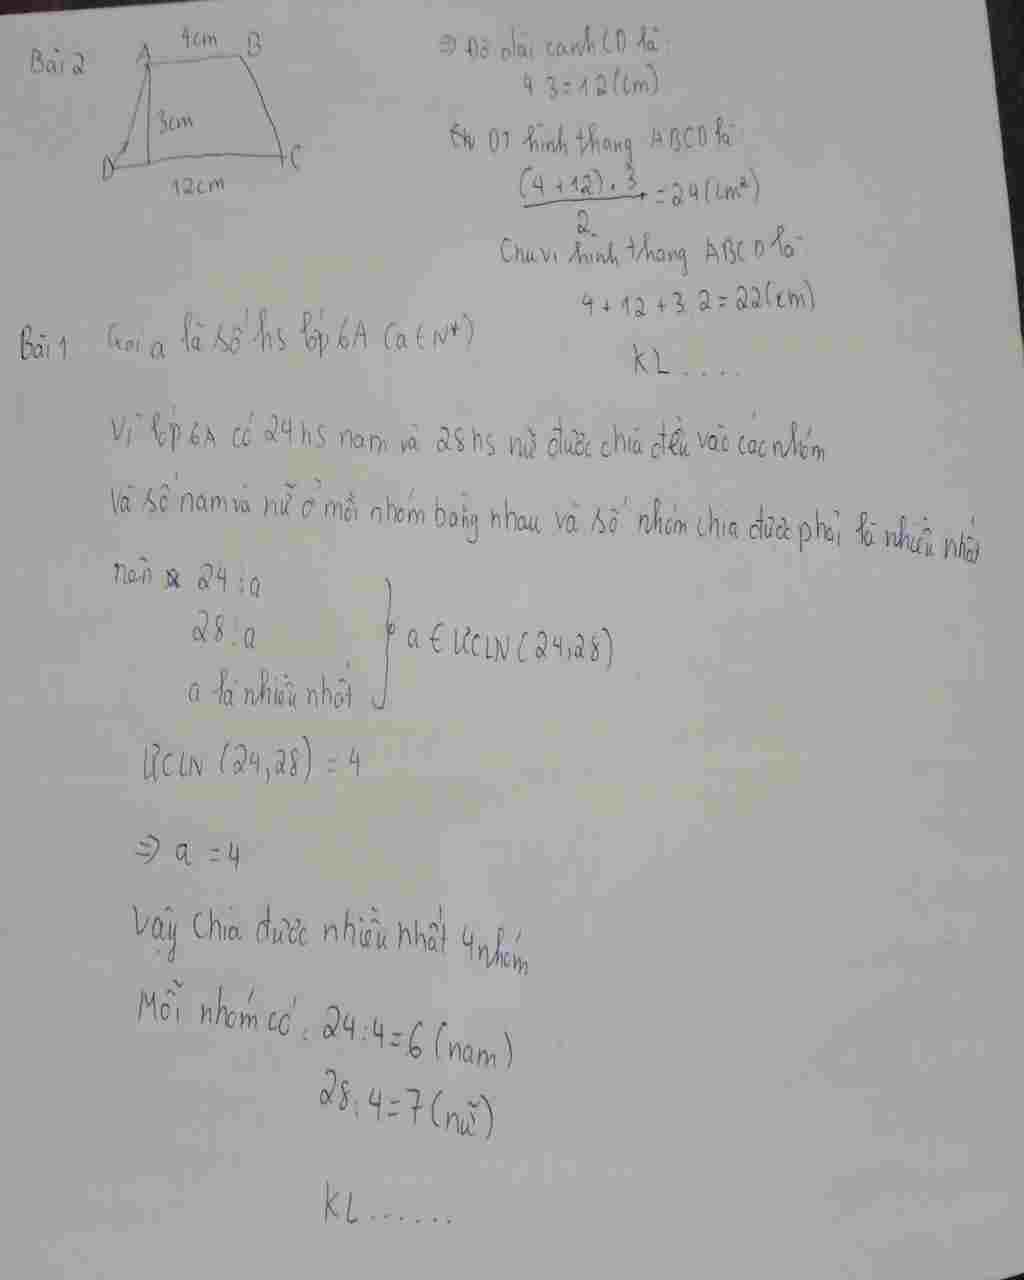 Bài 2
4cm
A
B
3cm
D
C
12cm
=> Độ dài cạnh CD là:
4.3=12(cm)
DT hình thang ABCD là
(4+12).3
2
=24(cm²)
Chu vi hình thang ABCD là
4+12+3.2=22(cm)
KL....
Bài 1 Gọi a là số hs lớp 6A (a∈N*)
Vì lớp 6A có 24hs nam và 28hs nữ được chia đều vào các nhóm
Và số nam và nữ ở mỗi nhóm bằng nhau và số nhóm chia được phải là nhiều nhất
nên 24⋮a
28⋮a
a là nhiều nhất
} a ∈ ƯCLN(24,28)
ƯCLN(24,28)=4
=> a=4
Vậy chia được nhiều nhất 4 nhóm
Mỗi nhóm có: 24:4=6(nam)
28:4=7(nữ)
KL......